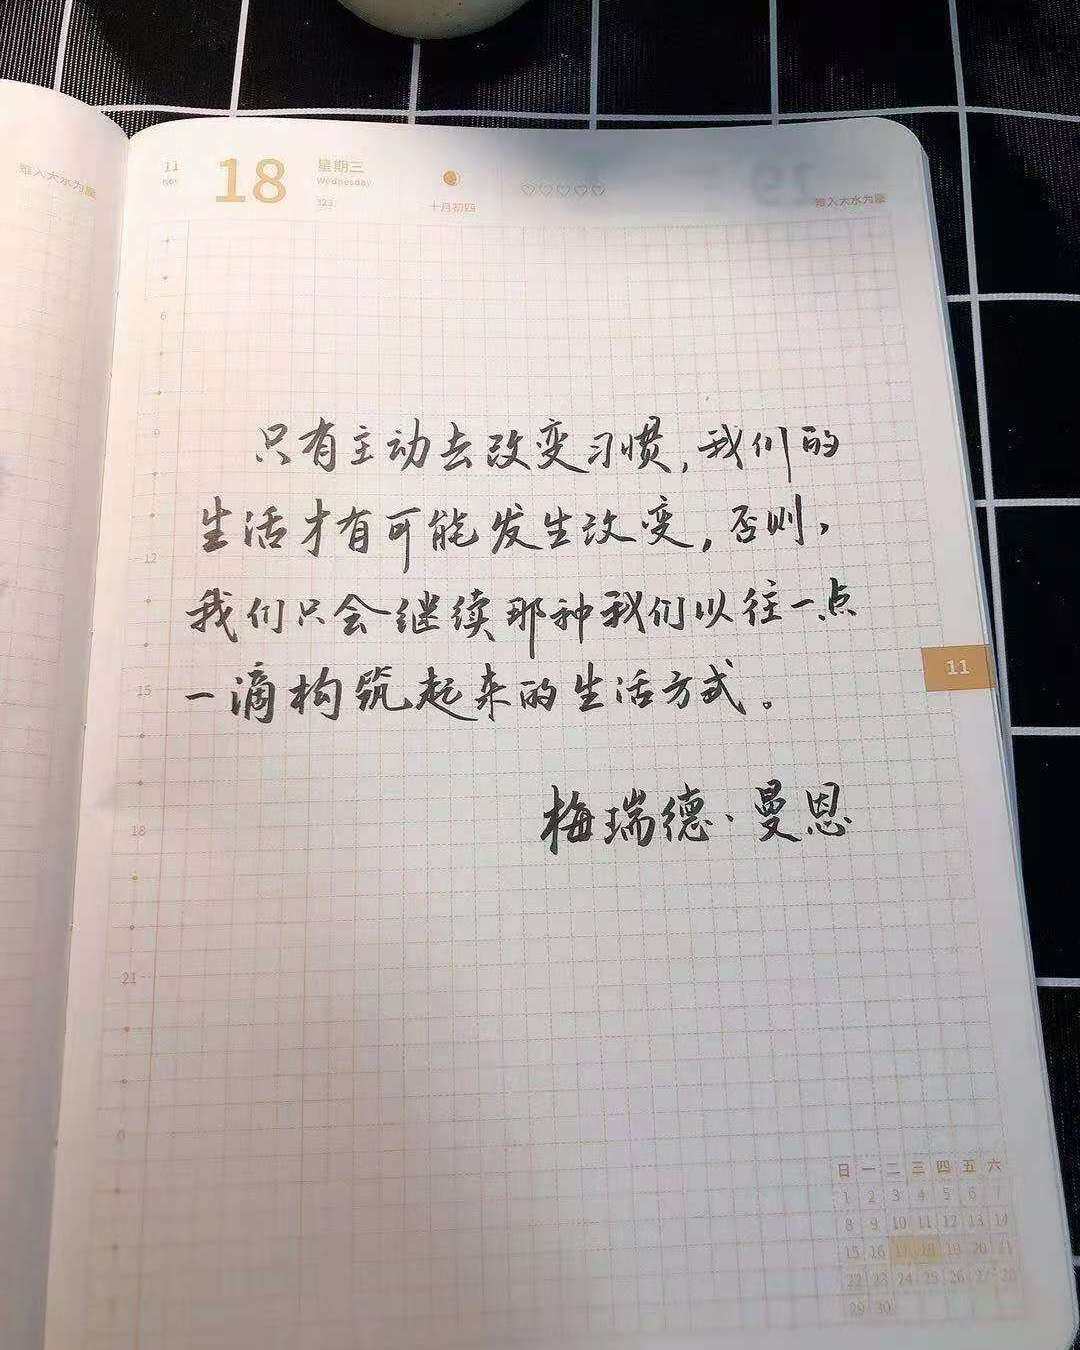 雉入大水为蜃
11
NOV
18
星期三
Wednesday
323
十月初四
雉入大水为蜃
6
9
只有主动去改变习惯,我们的
生活才有可能发生改变,否则,
12
我们只会继续那种我们以往一点
11
15
一滴构筑起来的生活方式。
梅瑞德·曼恩
18
21
0
日 一 二 三 四 五 六
1 2 3 4 5 6 7
8 9 10 11 12 13 14
15 16 17 18 19 20 21
22 23 24 25 26 27 28
29 30